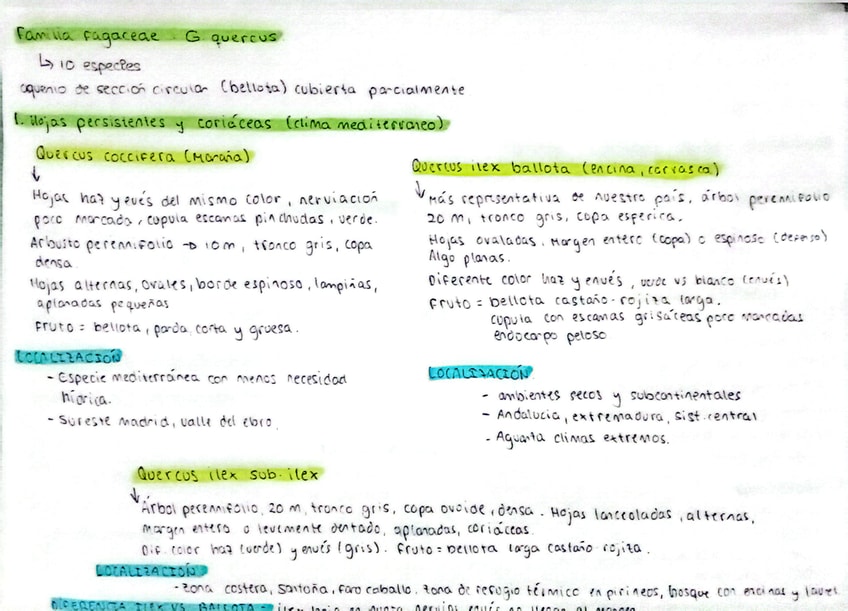 Familia fagaceae G quercus
↳ 10 especies
aquenio de sección circular (bellota) cubierta parcialmente
1. Hojas persistentes y coriáceas (clima mediterraneo)
Quercus coccifera (Maraña)
Hojas haz y evés del mismo color, nerviación
poco marcada, cupula escamas pinchudas, verde.
Arbusto perennifolio → 10m, tronco gris, copa
densa.
Hojas alternas, ovales, borde espinoso, lampiñas,
aplanadas pequeñas
Fruto = bellota, parda, corta y gruesa.
LOCALIZACIÓN
- Especie mediterránea con menos necesidad
hídrica.
- Sureste madrid, valle del ebro.
Quercus ilex ballota (encina, carrasca)
Más representativa de nuestro país, árbol perennifolio
20 m, tronco gris, copa esferica.
Hojas ovaladas. Margen entero (copa) o espinoso (defensa)
Algo planas.
Diferente color haz y envés, verde vs blanco (envés)
Fruto = bellota castaño-rojiza larga.
cupula con escamas grisáceas poco marcadas
endocarpo peloso
LOCALIZACIÓN
- ambientes secos y subcontinentales
- Andalucia, extremadura, sist. central
- Aguanta climas extremos.
Quercus ilex sub. ilex
Árbol perennifolio, 20 m, tronco gris, copa ovoide, densa. Hojas lanceoladas, alternas,
margen entero o levemente dentado, aplanadas, coriáceas.
Dif. color haz (verde) y envés (gris). Fruto = bellota larga castaño-rojiza.
LOCALIZACIÓN
- zona costera, Santoña, faro caballo. Zona de refugio térmico en pirineos, bosque con encinas y laurel
DIFERENCIA ILEX VS. BALLOTA - ilex hoja en punta, nervios envés no llegan al margen